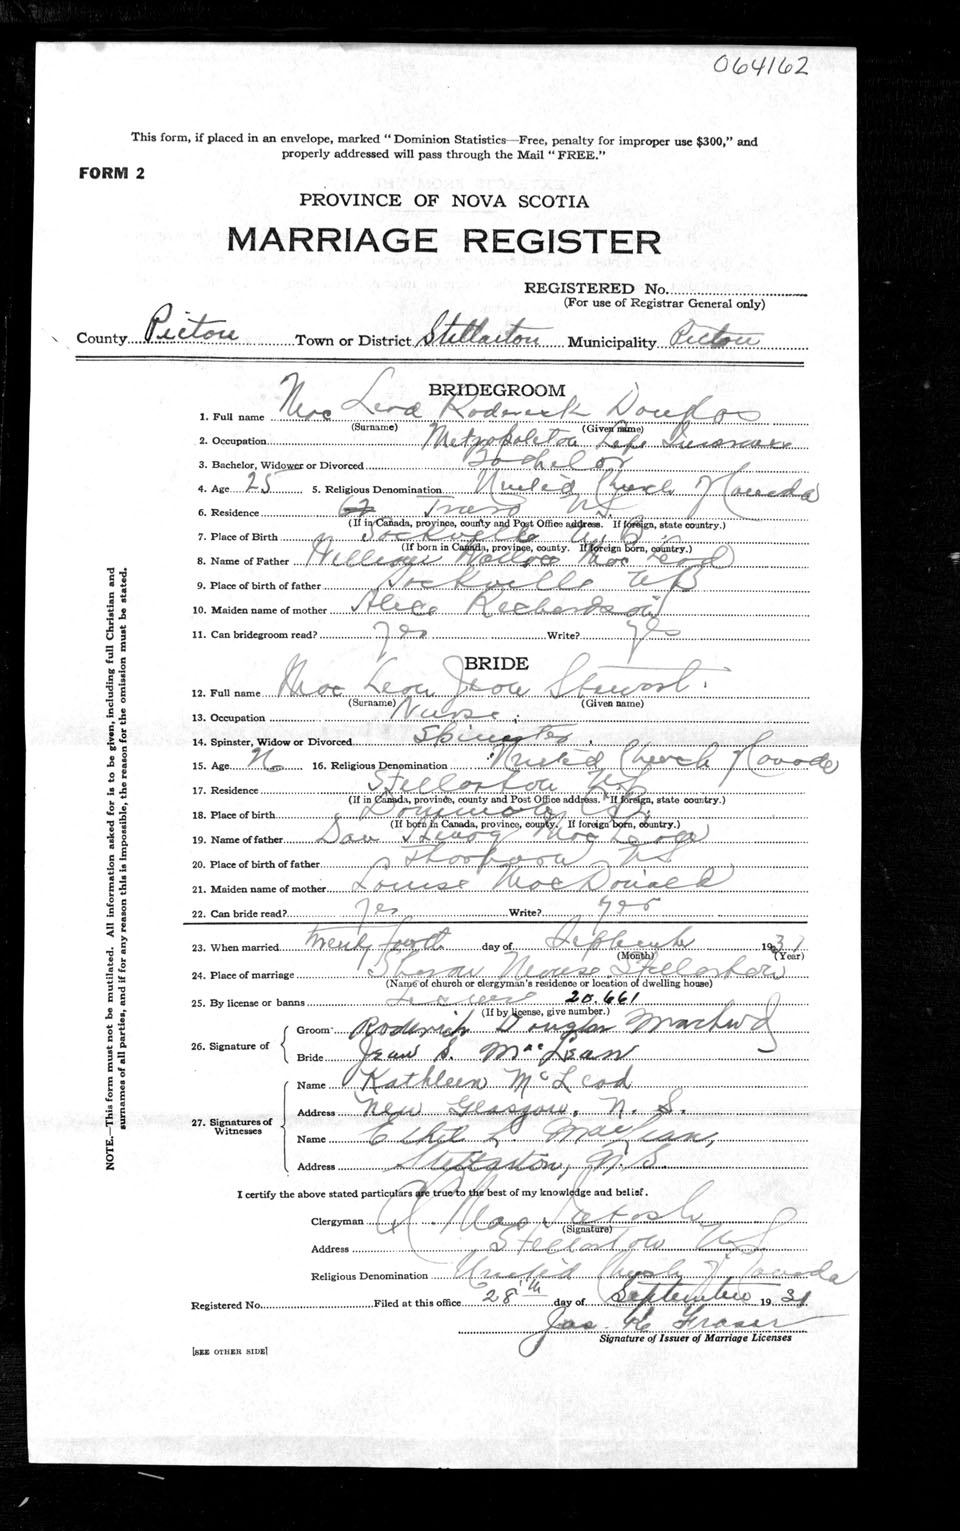 064162
This form, if placed in an envelope, marked "Dominion Statistics—Free, penalty for improper use $300," and
properly addressed will pass through the Mail "FREE."
FORM 2
PROVINCE OF NOVA SCOTIA
MARRIAGE REGISTER
REGISTERED No.
(For use of Registrar General only)
County Pictou Town or District Stellarton Municipality Pictou
BRIDEGROOM
1. Full name Mac Leod Roderick Douglas
(Surname) (Given name)
2. Occupation Metropolitan Life Insurance
3. Bachelor, Widower or Divorced Bachelor
4. Age 25 5. Religious Denomination United Church of Canada
6. Residence Truro N.S.
(If in Canada, province, county and Post Office address. If foreign, state country.)
7. Place of Birth Sackville N.B.
(If born in Canada, province, county. If foreign born, country.)
8. Name of Father William Wallace Mac Leod
9. Place of birth of father Sackville N B
10. Maiden name of mother Alice Richardson
11. Can bridegroom read? yes Write? yes
BRIDE
12. Full name Mac Lean Jean Stewart
(Surname) (Given name)
13. Occupation Nurse
14. Spinster, Widow or Divorced Spinster
15. Age 16. Religious Denomination United Church of Canada
17. Residence Stellarton N.S.
(If in Canada, province, county and Post Office address. If foreign, state country.)
18. Place of birth
(If born in Canada, province, county. If foreign born, country.)
19. Name of father Mac Lean
20. Place of birth of father Thorburn N S
21. Maiden name of mother Louise Mac Donald
22. Can bride read? yes Write? yes
23. When married twenty fourth day of September 1931
(Month) (Year)
24. Place of marriage Stellarton
(Name of church or clergyman's residence or location of dwelling house)
25. By license or banns License 20.661
(If by license, give number.)
26. Signature of
Groom Roderick Douglas MacLeod
Bride Jean S. MacLean
27. Signatures of Witnesses
Name Kathleen McLeod
Address New Glasgow, N. S.
Name Ethel L. MacLean,
Address Stellarton, N.S.
I certify the above stated particulars are true to the best of my knowledge and belief.
Clergyman Mac Intosh
(Signature)
Address Stellarton N S
Religious Denomination United Church of Canada
Registered No. Filed at this office 28th day of September 1931
Jas. H. Fraser
Signature of Issuer of Marriage Licenses
[SEE OTHER SIDE]
NOTE.—This form must not be mutilated. All information asked for is to be given, including full Christian and
surnames of all parties, and if for any reason this is impossible, the reason for the omission must be stated.